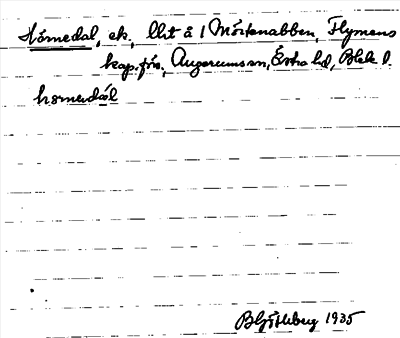 Hörnedal, ek. lht å 1 Mörtenabben, Flymens
kap.förs., Augerums sn, Östra hd, Blek l.
hörnerdál
B Götlberg 1935